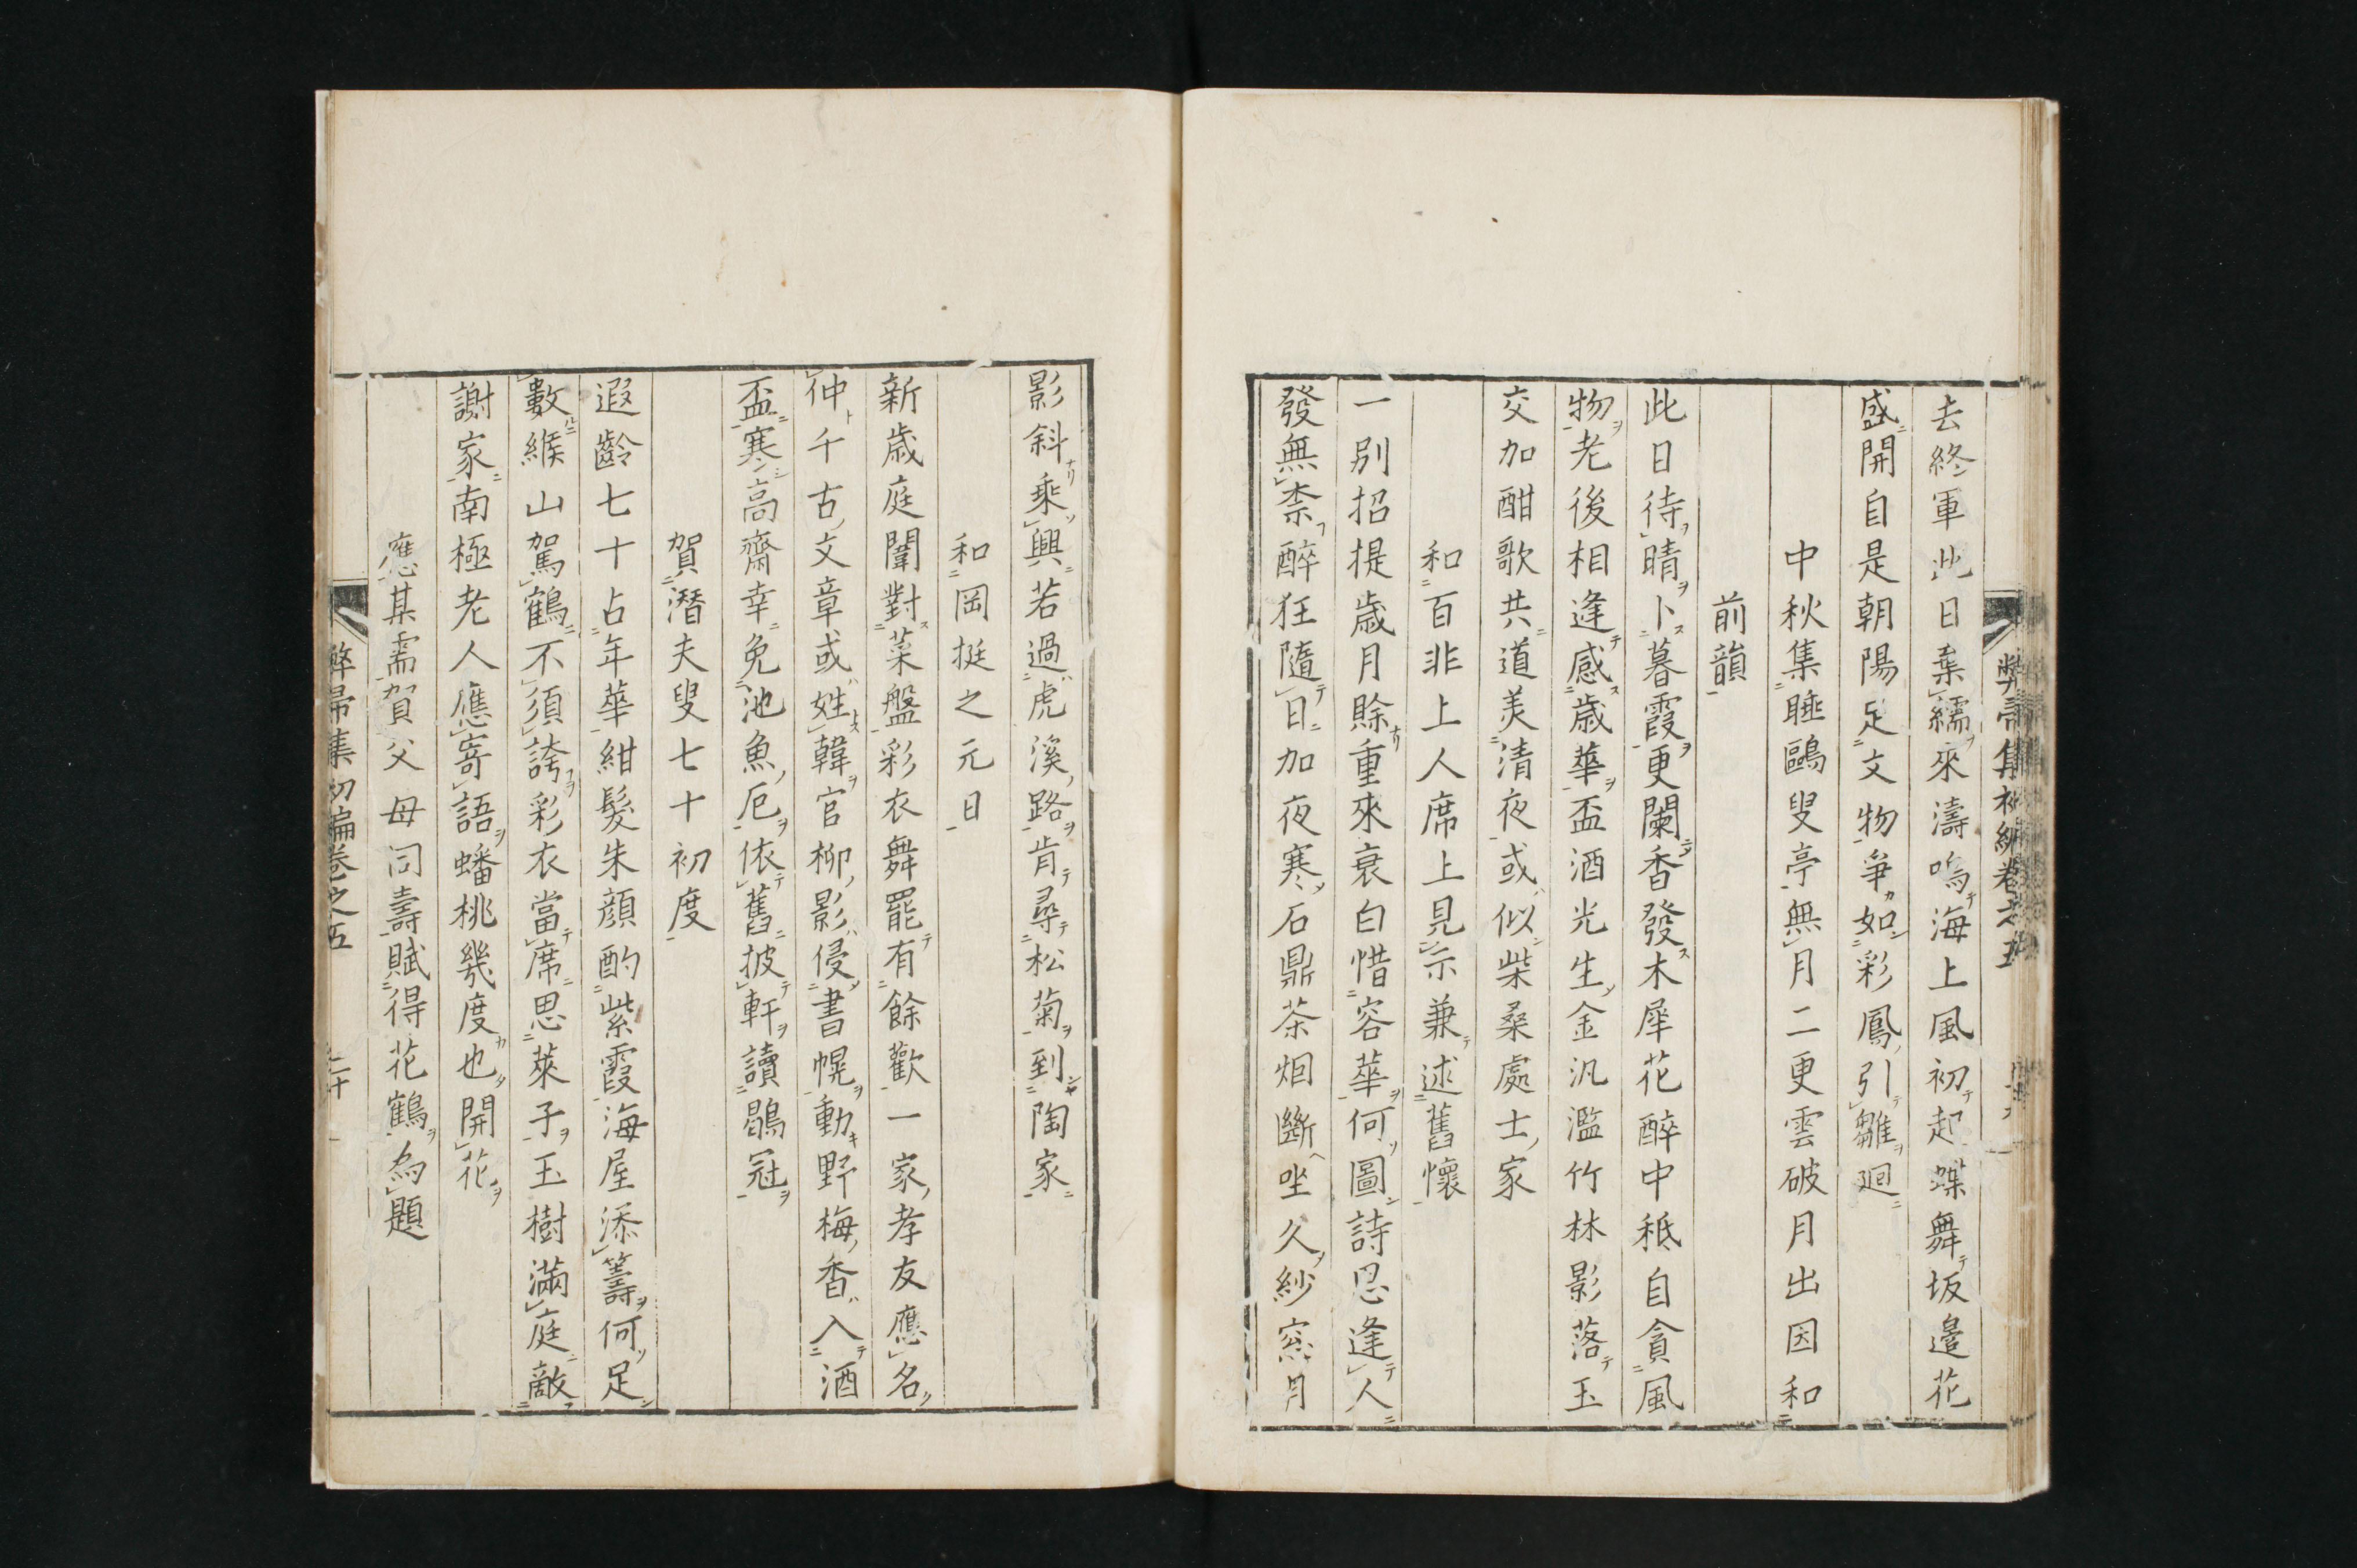 去終軍此日棄繻來濤鳴海上風初起蝶舞坂邉花
盛開自是朝陽足文物爭如彩鳳引雛廻
中秋集睡鷗叟亭無月二更雲破月出因和
前韻
此日待晴卜暮霞更闌香發木犀花醉中秪自貪風
物老後相逢感歳華盃酒光生金汎濫竹林影落玉
交加酣歌共道羙清夜或似柴桑處士家
和百非上人席上見示兼述舊懷
一別招提歳月賖重來衰白惜容華何圖詩思逢人
發無柰醉狂隨日加夜寒石鼎茶烟斷坐久紗窓月
影斜乘興若過虎溪路肯尋松菊到陶家
和岡挺之元日
新歳庭闈對菜盤彩衣舞罷有餘歡一家孝友應名
仲千古文章或姓韓官柳影侵書幌動野梅香入酒
盃寒高齋幸免池魚厄依舊披軒讀鶡冠
賀潛夫叟七十初度
遐齡七十占年華紺髮朱顔酌紫霞海屋添籌何足
數緱山駕鶴不須誇彩衣當席思萊子玉樹滿庭敵
謝家南極老人應寄語蟠桃幾度也開花
應其需賀父母同壽賦得花鶴為題
弊帚集初編卷之五